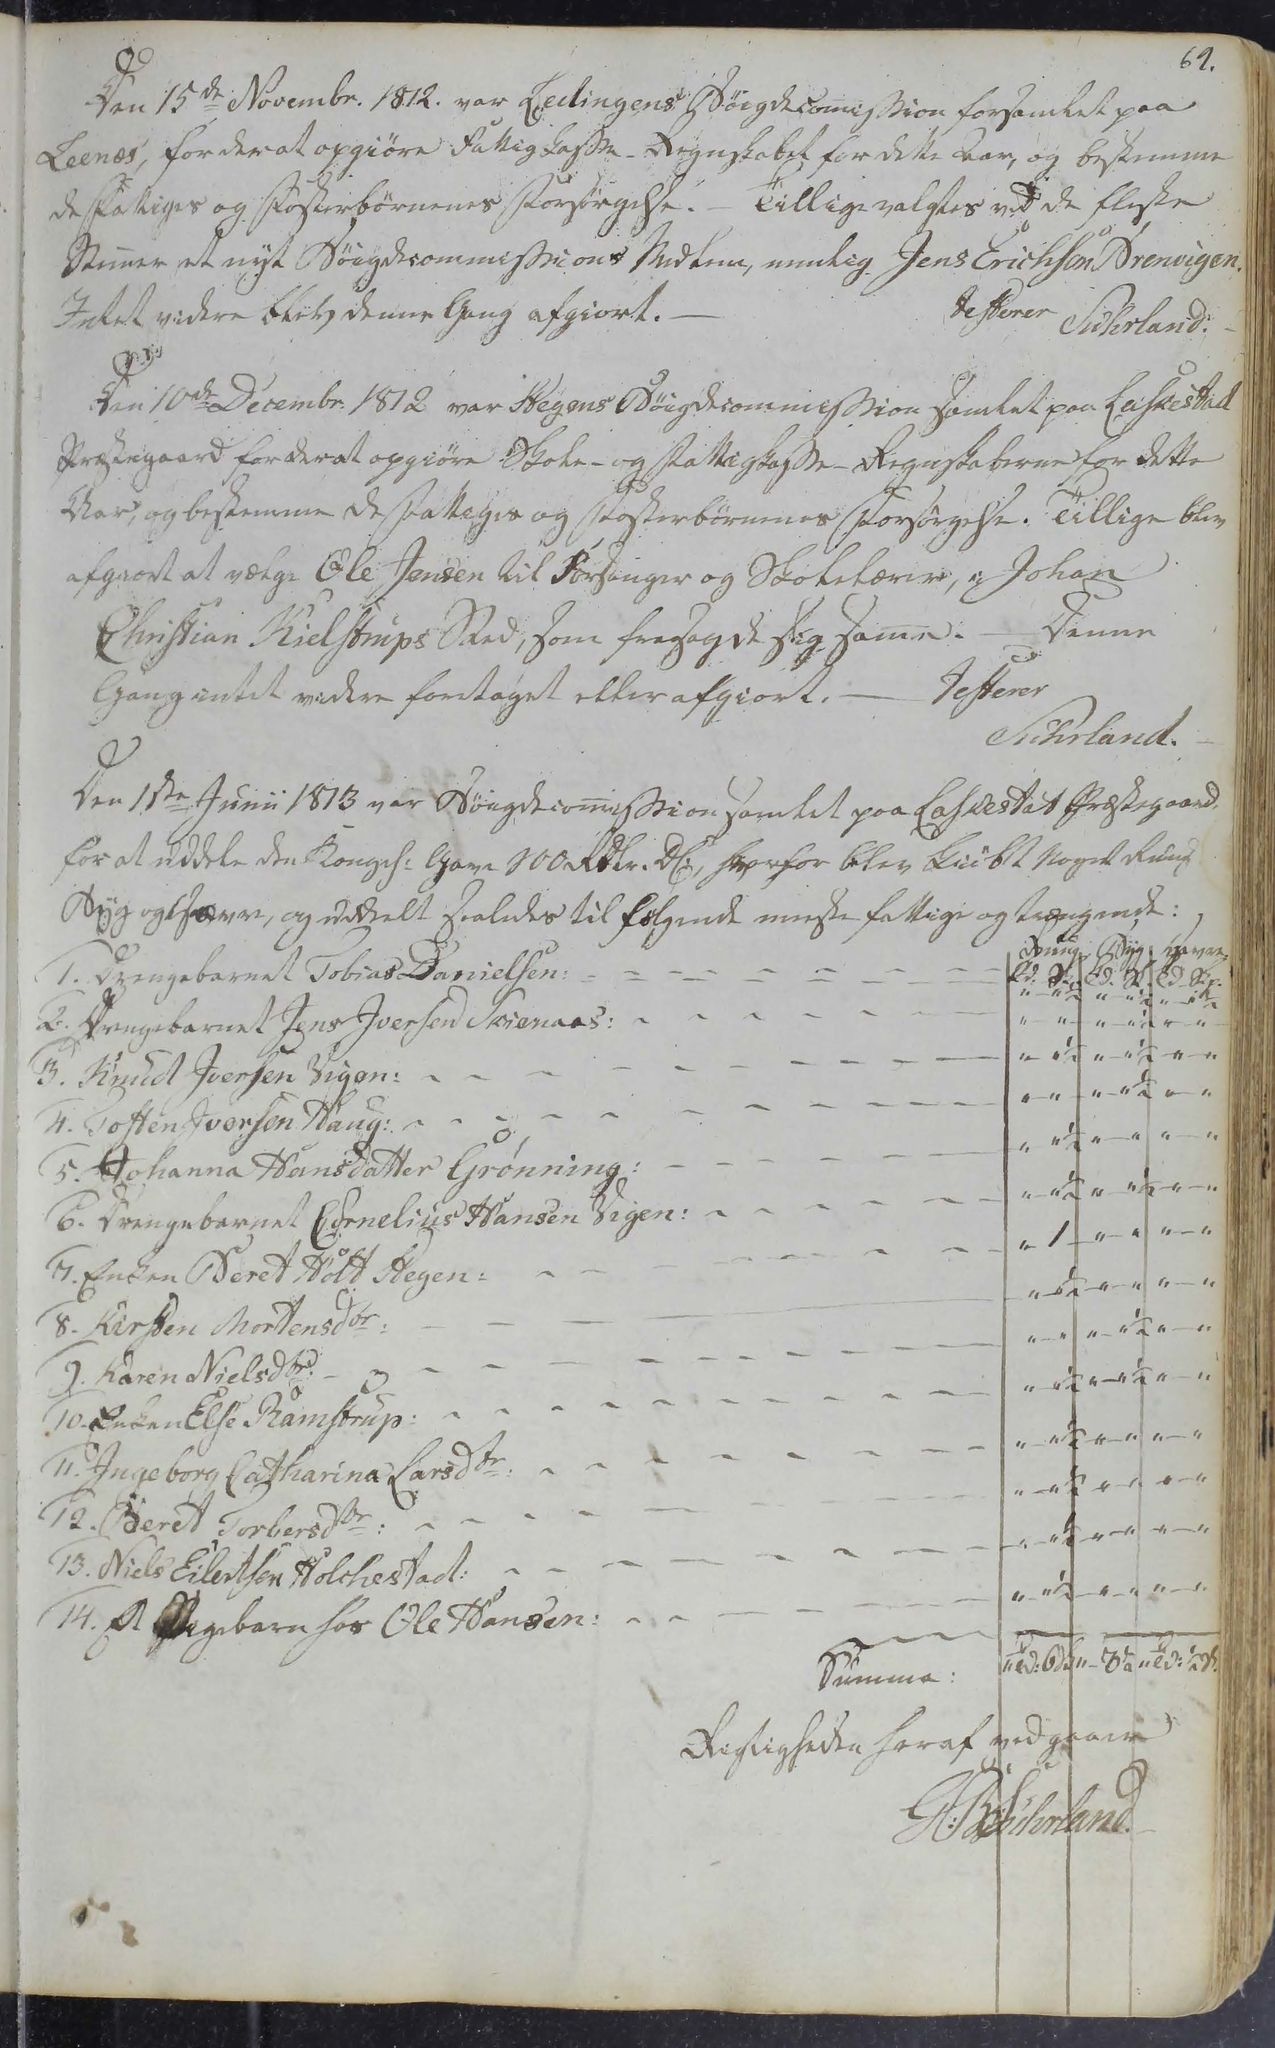 69.
Den 15de Novembr. 1812. var Ledingens Bøigdecommission forsamlet paa
Leenæs, for derat opgiøre Fattigkasse-Regnskabet for dette Aar, og bestemme
de Fattiges og Fosterbørnenes Forsørgelse. – Tillige valgtes ved de fleste
Stemer et nyt Bøigdecommissions Medlem, nemlig Jens Erichsen Brenvigen.
Intet videre blev denne Gang afgiort. –
testerer Suhrland. –
Den 10de Decembr. 1812 var Stegens Bøigdecommission samlet paa Laskestad
Præstegaard for derat opgiøre Skole- og Fattigkasse-Regnskaberne for dette
Aar, og bestemme de Fattiges og Fosterbørnenes Forsørgelse. Tillige blev
afgiort at vælge Ole Jensen til Forsanger og Skolelærer, i Johan
Christian Kielstrups Sted, som frasagde sig samme. – Denne
Gang intet videre foretaget eller afgiort. – testerer
Suhrland. –
Den 1ste Junii 1813 var Bøigdecommission samlet paa Laskestat Præstegaard,
for at uddele den Kongel: Gave 100 Rdlr. DC:, hvorfor blev kiøbt noget Rug,
Byg og Havre, og uddeelt saaledes til følgende meste fattige og trængende:
Rug, Byg, Havre,
1. Drengebarnet Tobias Danielsen:
2. Drengebarnet Jens Iversen Skienaas:
3. Knud Iversen Vigen:
4. Tosten Iversen Haug:
5. Johanna Hansdatter Grønning:
6. Drengebarnet Cornelius Hansen Vigen:
7. Enken Beret Holt Stegen: " 1
8. Kirsten Mortensdtr:
9. Karen Nielsdtr:
10. Enken Else Ramstrup:
11. Ingeborg Catharina Larsdtr:
12. Beret Torbersdtr:
13. Niels Eilertsen Holchestad:
14. Et Pigebarn hos Ole Hansen:
Summa:
Rigtigheden heraf vedgaaer
Suhrland. –